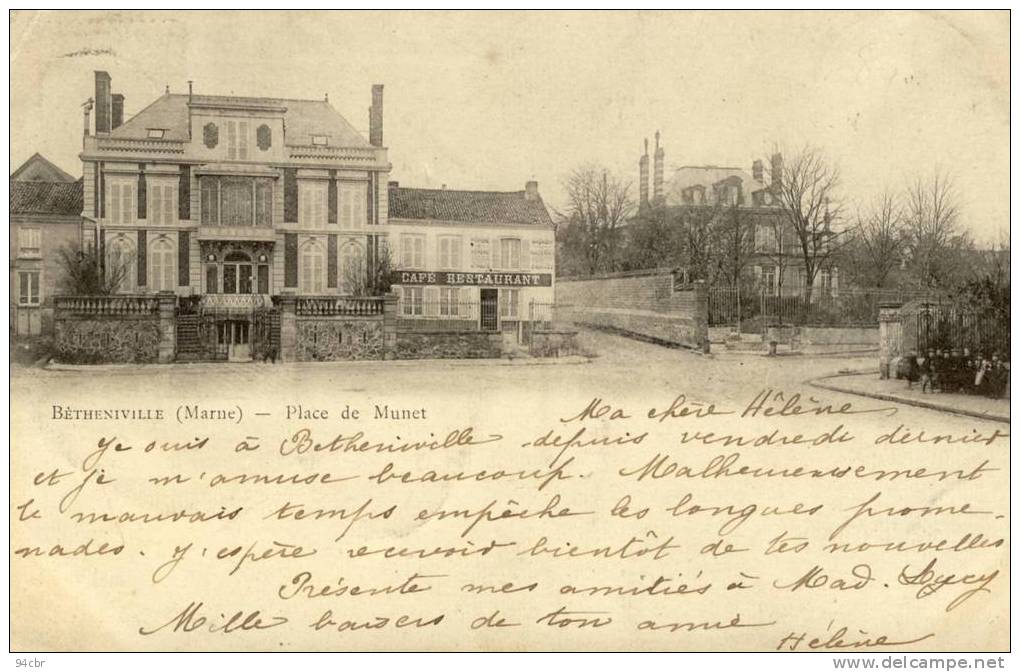 CAFÉ RESTAURANT
BÉTHENIVILLE (Marne) — Place de Munet
Ma chère Hélène
Je suis à Betheniville depuis vendredi dernier
et je m'amuse beaucoup. Malheureusement
le mauvais temps empêche les longues prome-
nades. J'espère recevoir bientôt de tes nouvelles
Présente mes amitiés à Mad. Lucy
Mille baisers de ton amie
Hélène
94cbr
www.delcampe.net